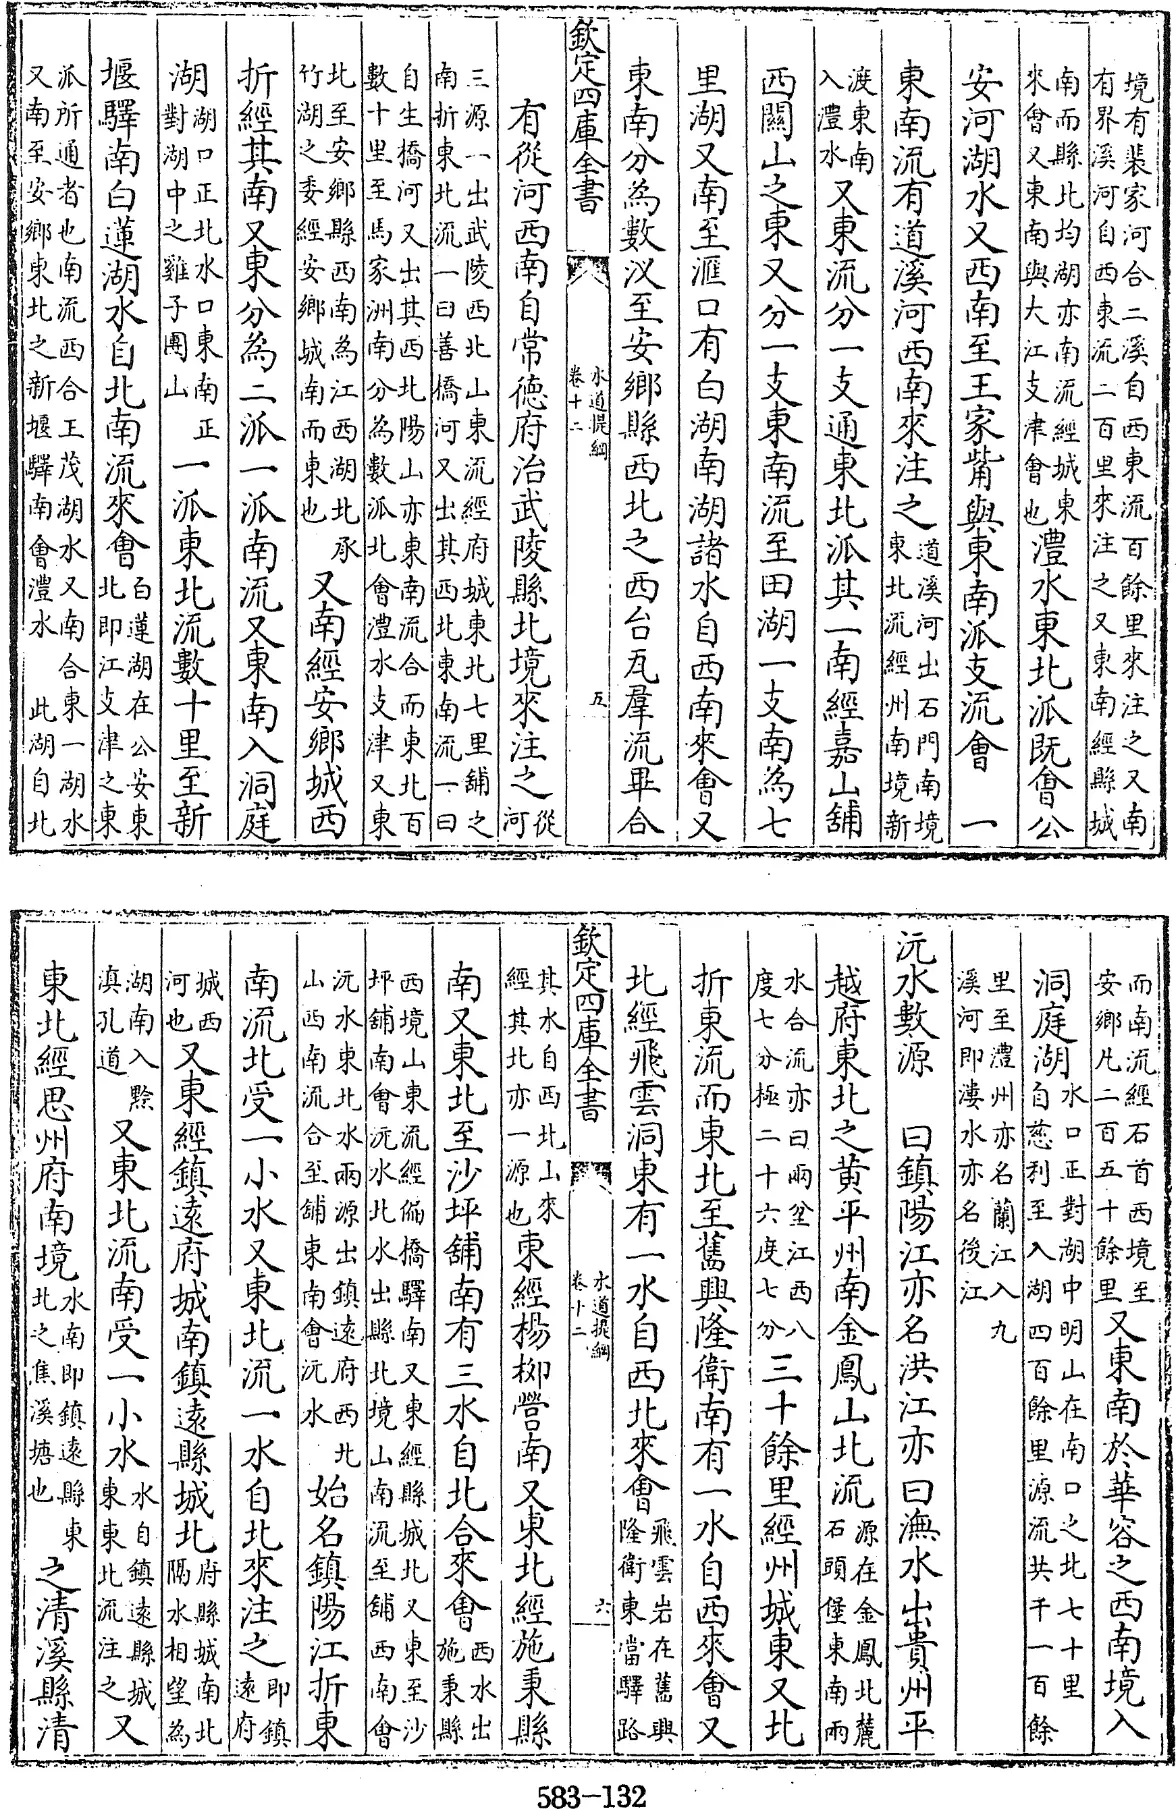 境有裴家河合二溪自西東流百餘里來注之又南
有界溪河自西東流二百里來注之又東南經縣城
南而縣北均湖亦南流經城東
來會又東南與大江支津會也
澧水東北派既會公
安河湖水又西南至王家觜與東南派支流會　一
東南流有道溪河西南來注之
道溪河出石門南境
東北流經州南境新
渡東南
入澧水
又東流分一支通東北派其一南經嘉山舖
西關山之東又分一支東南流至田湖一支南為七
里湖又南至滙口有白湖南湖諸水自西南來會又
東南分為數汊至安鄉縣西北之西台瓦羣流畢合
欽定四庫全書
水道提綱
卷十二
五
有從河西南自常德府治武陵縣北境來注之
從
河
三源一出武陵西北山東流經府城東北七里舖之
南折東北流一曰善橋河又出其西北東南流一曰
自生橋河又出其西北陽山亦東南流合而東北百
數十里至馬家洲南分為數派北會澧水支津又東
北至安鄉縣西南為江西湖北承
竹湖之委經安鄉城南而東也
又南經安鄉城西
折經其南又東分為二派一派南流又東南入洞庭
湖
湖口正北水口東南正
對湖中之雞子團山
一派東北流數十里至新
堰驛南白蓮湖水自北南流來會
白蓮湖在公安東
北即江支津之東
派所通者也南流西合王茂湖水又南合東一湖水
又南至安鄉東北之新堰驛南會澧水　此湖自北
而南流經石首西境至
安鄉凡二百五十餘里
又東南於華容之西南境入
洞庭湖
水口正對湖中明山在南口之北七十里
自慈利至入湖四百餘里源流共千一百餘
里至澧州亦名蘭江入九
溪河即漊水亦名後江
沅水數源　曰鎮陽江亦名洪江亦曰潕水出貴州平
越府東北之黄平州南金鳳山北流
源在金鳳北麓
石頭堡東南兩
水合流亦曰兩岔江西八
度七分極二十六度七分
三十餘里經州城東又北
折東流而東北至舊興隆衛南有一水自西來會又
北經飛雲洞東有一水自西北來會
飛雲岩在舊興
隆衛東當驛路
欽定四庫全書
水道提綱
卷十二
六
其水自西北山來
經其北亦一源也
東經楊柳營南又東北經施秉縣
南又東北至沙坪舖南有三水自北合來會
西水出
施秉縣
西境山東流經偏橋驛南又東經縣城北又東至沙
坪舖南會沅水北水出縣北境山南流至舖西南會
沅水東北水兩源出鎮遠府西北
山西南流合至舖東南會沅水
始名鎮陽江折東
南流北受一小水又東北流一水自北來注之
即鎮
遠府
城西
河也
又東經鎮遠府城南鎮遠縣城北
府縣城南北
隔水相望為
湖南入黔
滇孔道
又東北流南受一小水
水自鎮遠縣城
東東北流注之
又
東北經思州府南境
水南即鎮遠縣東
北之焦溪塘也
之清溪縣清
583-132